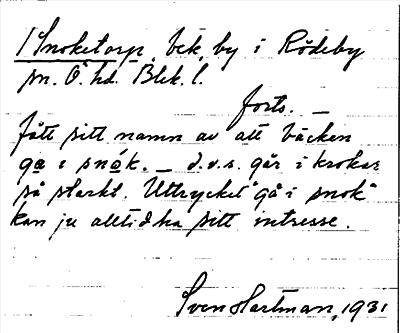 1 Snoketorp, bek, by i Rödeby
sn. Ö. hd. Blek. l.
forts. —
fått sitt namn av att bäcken
ga i snók. — d.v.s. går i krokar
så starkt. Uttrycket "gå i snok"
kan ju alltid ha sitt intresse.
Sven Hartman, 1931